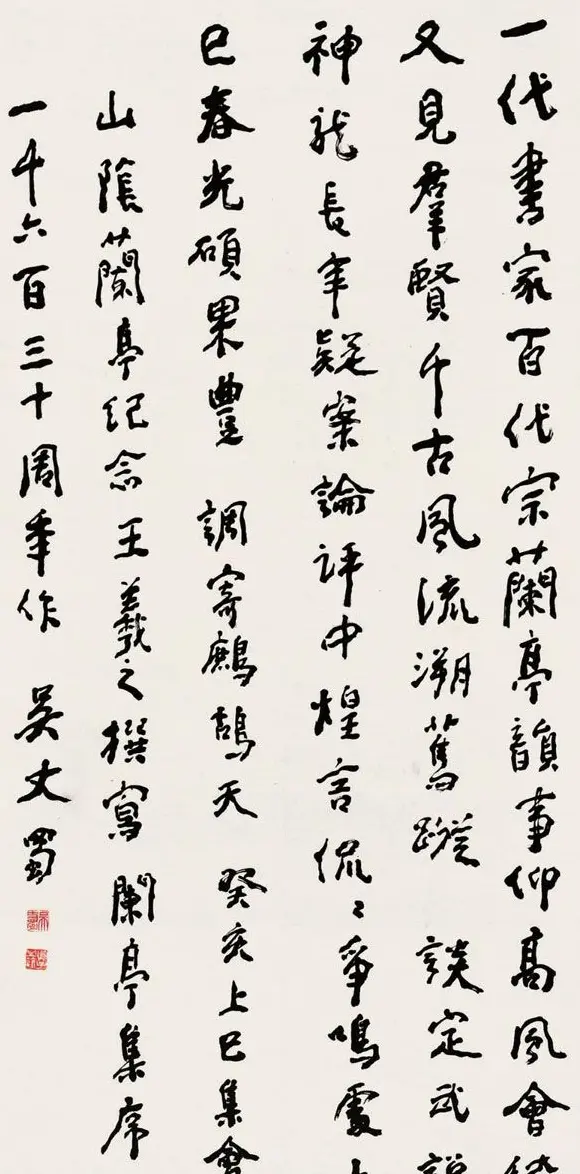 一代書家百代宗蘭亭韻事仰高風會
又見羣賢千古風流溯舊蹤 談定武說
神龍長年疑案論評中煌言侃〻爭鳴處
巳春光碩果豐 調寄鷓鴣天 癸亥上巳集會
山陰蘭亭紀念王羲之撰寫蘭亭集序
一千六百三十周年作 吳丈蜀